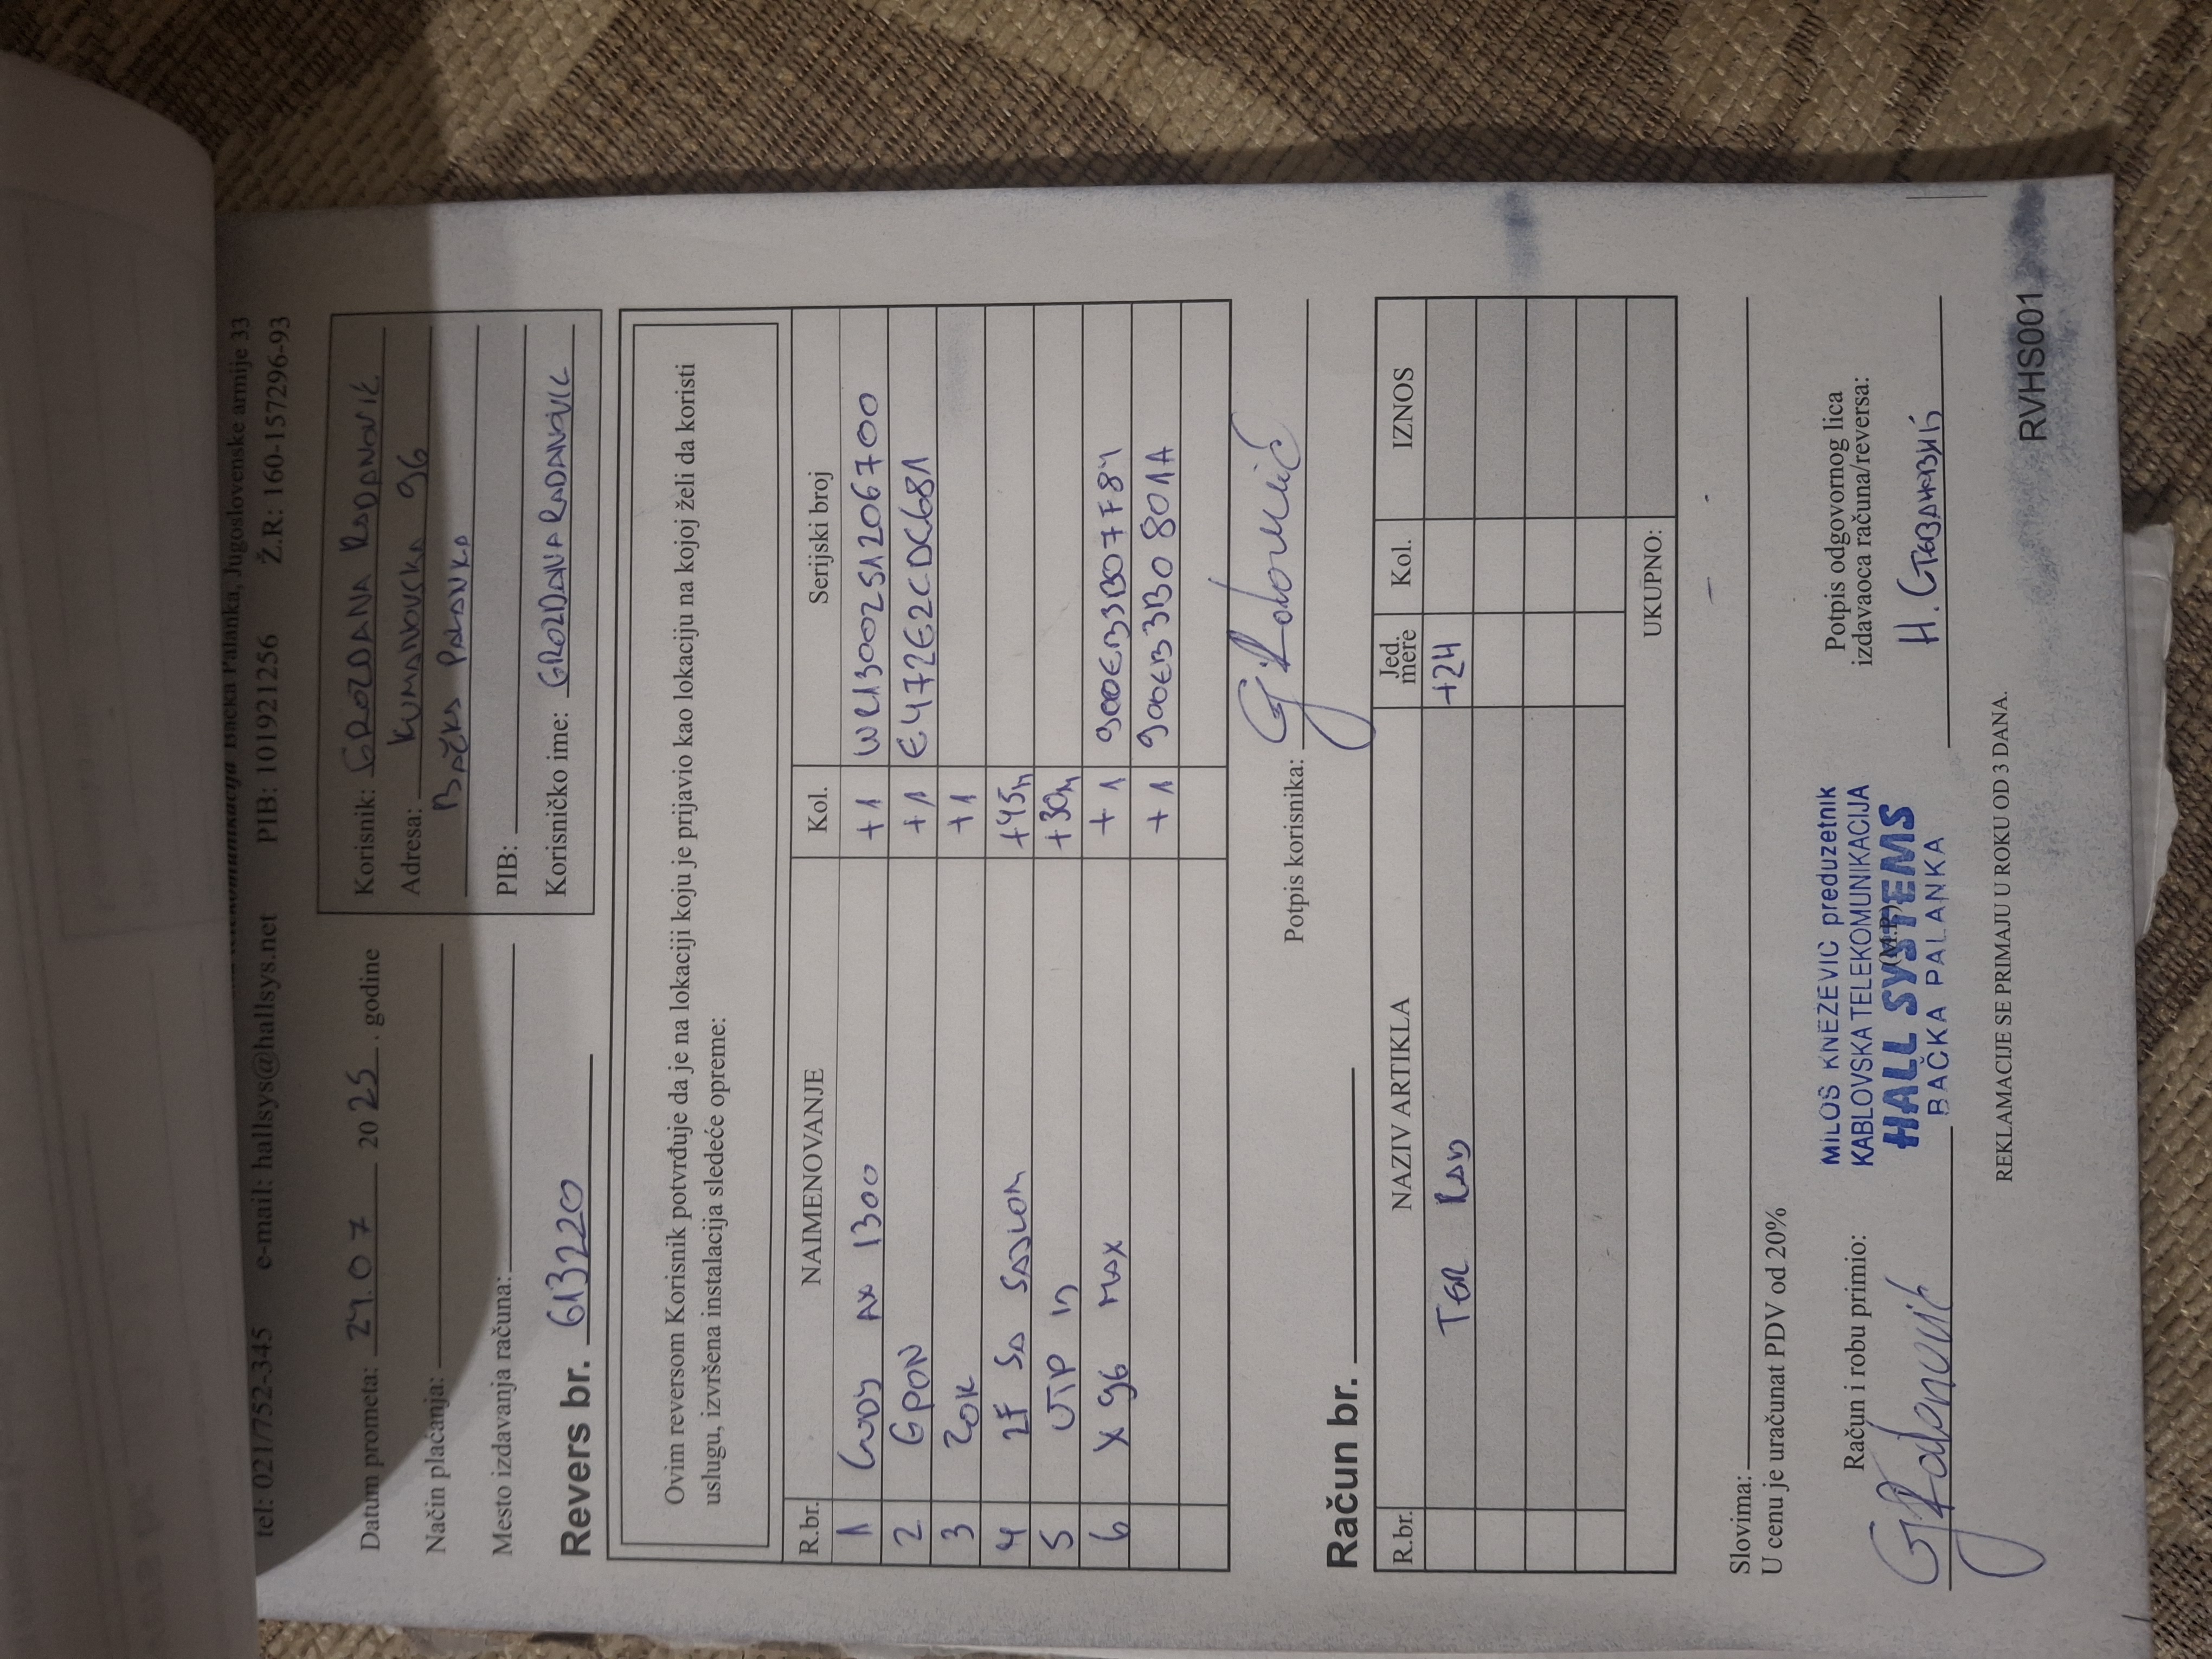 Bačka Palanka, Jugoslovenske armije 33
tel: 021/752-345 e-mail: hallsys@hallsys.net PIB: 101921256 Ž.R: 160-157296-93
Datum prometa: 24.07 2025. godine
Način plaćanja:
Mesto izdavanja računa:
Korisnik: GROZDANA RADANOVIĆ
Adresa: KUMANOVSKA 96
BAČKA PALANKA
PIB:
Korisničko ime: GROZDANA RADANOVIC
Revers br. 613220
Ovim reversom Korisnik potvrđuje da je na lokaciji koju je prijavio kao lokaciju na kojoj želi da koristi
uslugu, izvršena instalacija sledeće opreme:
R.br. NAIMENOVANJE Kol. Serijski broj
1 CUDY AX 1300 +1 WR1300251206700
2 GPON +1 E472E2CDC681
3 ZOK +1
4 2F SA SAJLOM +45m
5 UTP +30m
6 X96 MAX +1 900EB3B07F84
+1 900EB3B0801A
Potpis korisnika: GRadanović
Račun br.
R.br. NAZIV ARTIKLA Jed. mere Kol. IZNOS
TER RAD +24
UKUPNO:
Slovima:
U cenu je uračunat PDV od 20%
Račun i robu primio:
GRadanović
MILOŠ KNEŽEVIĆ preduzetnik
KABLOVSKA TELEKOMUNIKACIJA
HALL SYSTEMS
BAČKA PALANKA
(M.P.)
Potpis odgovornog lica
izdavaoca računa/reversa:
Н. Стевановић
REKLAMACIJE SE PRIMAJU U ROKU OD 3 DANA.
RVHS001